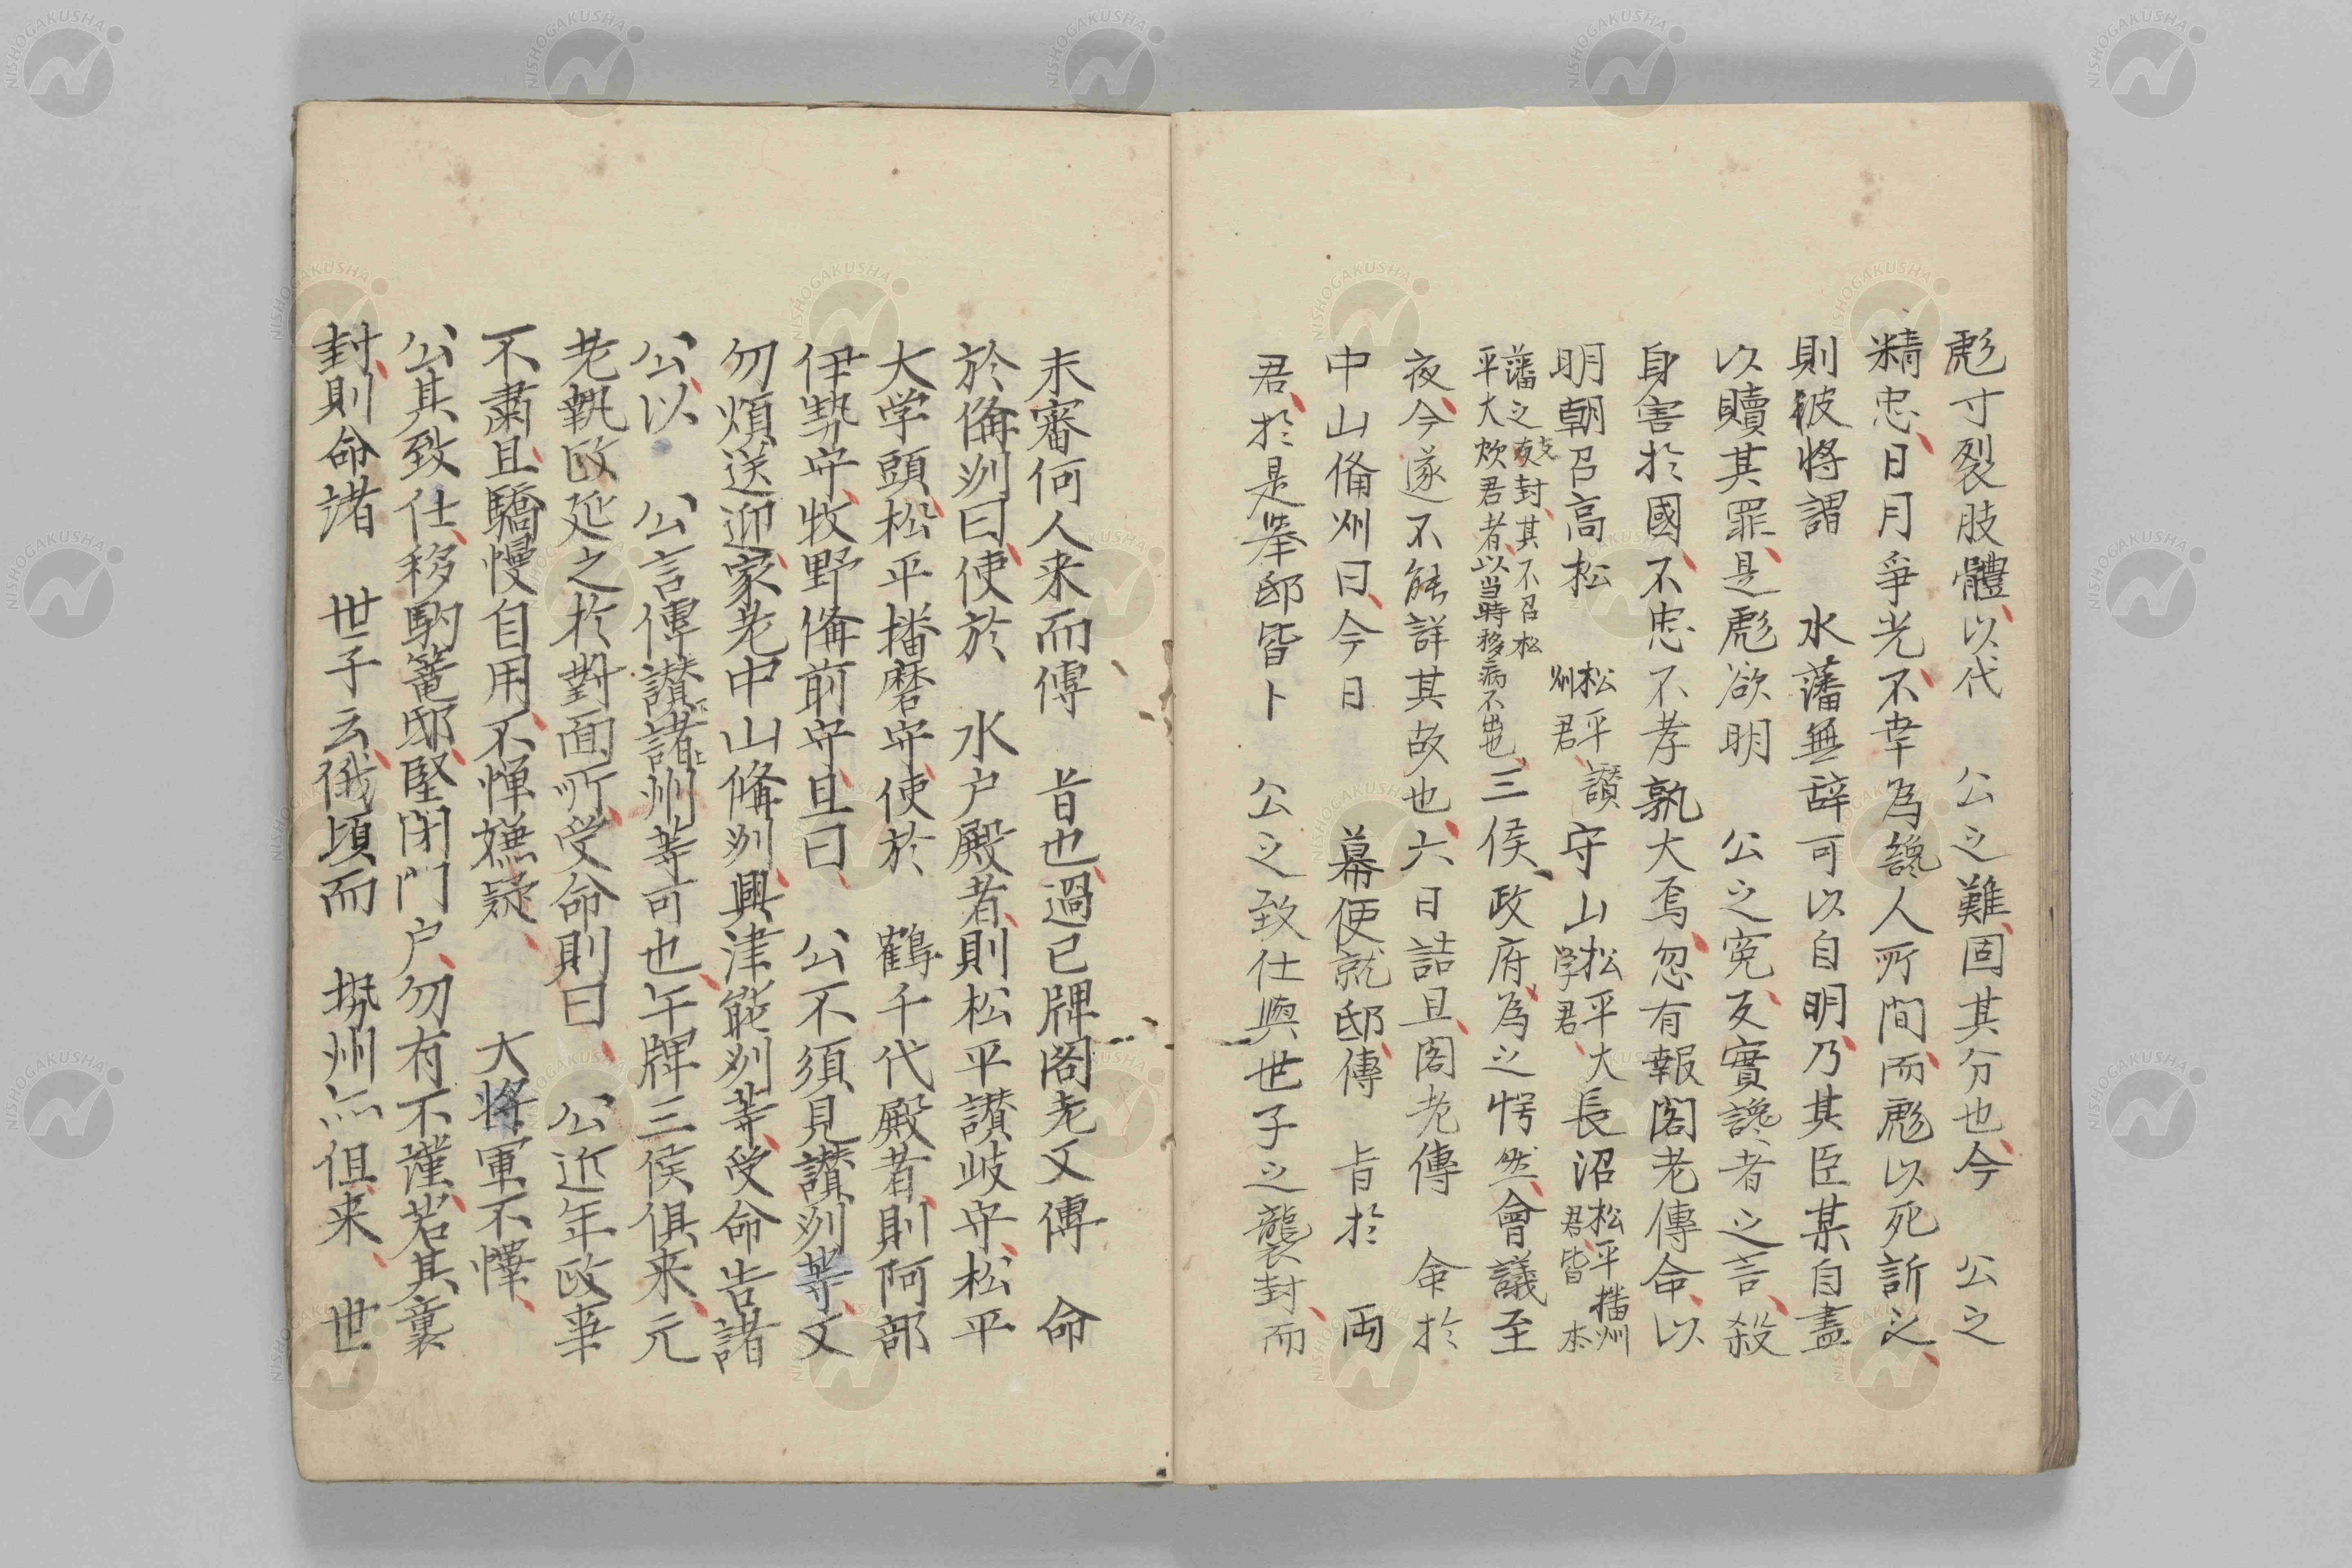 彪寸裂肢體以代　公之難固其分也今　公之
精忠日月爭光不幸為讒人所間而彪以死訴之
則彼將謂　水藩無辞可以自明乃其臣某自盡
以贖其罪是彪欲明　公之寃反實讒者之言殺
身害於國不忠不孝孰大焉忽有報閣老傳命以
明朝召高松松平讃州君守山松平大学君長沼松平播州君皆本
藩之支封其不召松平大炊君者以当時移病不出也三侯政府為之愕然會議至
夜今遂不能詳其故也六日詰旦閣老傳　命於
中山備州曰今日　幕使就邸傳　旨於　両
君於是挙邸皆卜　公之致仕與世子之襲封而
未審何人来而傳　旨也過巳牌閣老又傳　命
於備州曰使於　水户殿者則松平讃岐守松平
大学頭松平播磨守使於　鶴千代殿者則阿部
伊勢守牧野備前守且曰　公不須見讃州等又
勿煩送迎家老中山備州興津能州等受命告諸
公以　公言傳讃諸州等可也午牌三侯俱来元
老執政延之於對面所受命則曰　公近年政事
不肅且驕慢自用不憚嫌疑　大將軍不懌
公其致仕移駒篭邸堅閉門户勿有不謹若其襄
封則命諸　世子云俄頃而　勢州亦俱来　世